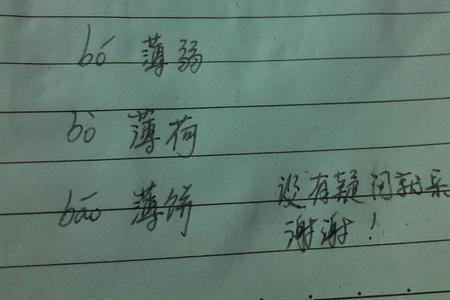 bó 薄弱
bò 薄荷
báo 薄饼
没有疑问就采
谢谢！